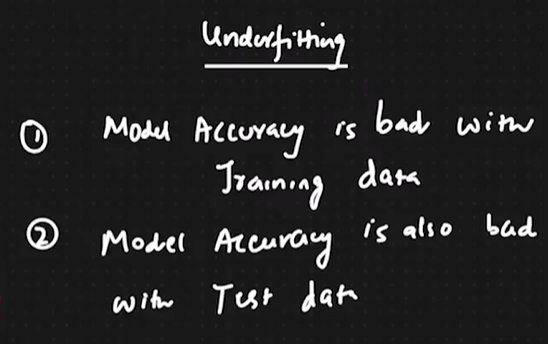 Underfitting
① Model Accuracy is bad with
Training data
② Model Accuracy is also bad
with Test data